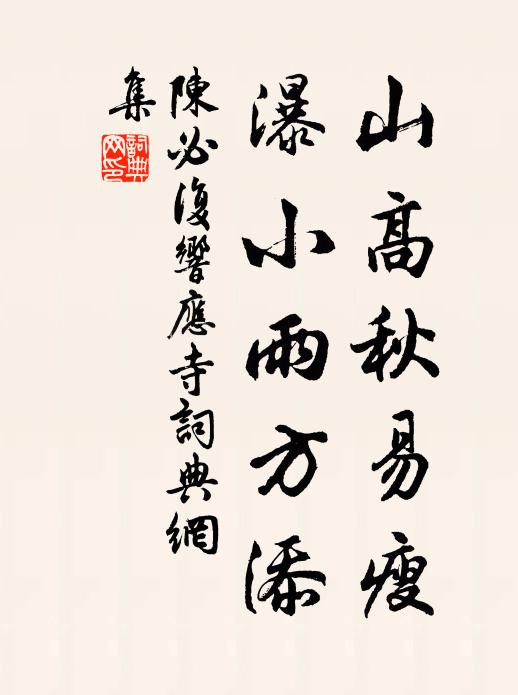 山高秋易瘦
瀑小雨方添
陳必復響應寺詞典網
集
詞典
网印